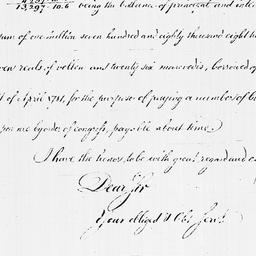 13,297.10.6 being the ballance of principal and inte
sum of one million seven hundred and eighty thousand eight h
ven reals of vellon and twenty six marvedis, borrowed of
t of April 1781, for the purpose of paying a number of b
pon me by order of congress, payable about time.
I have the honor to be with great regard and e
Dear Sir
Your obliged & Obt Servt